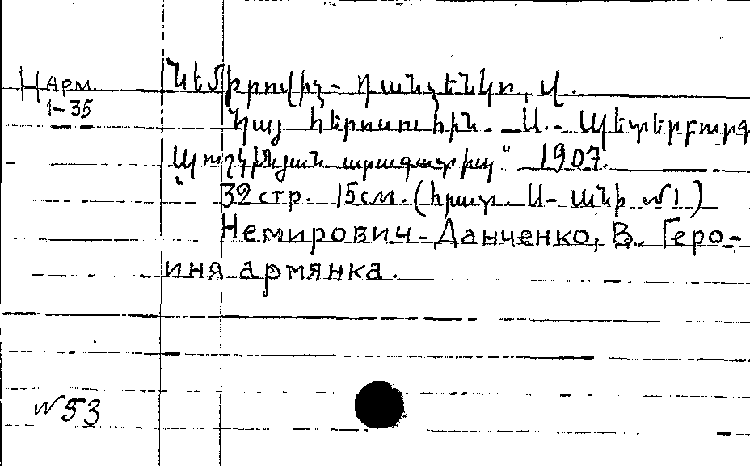 Н Арм. 1-35
Նեմիրովիչ-Դանչենկո, Վ.
Հայ հերոսուհին. Ս.-Պետերբուրգ
"Պուշկինյան արագատիպ" 1907.
32 стр. 15см. (հրատ. Ս- №1)
Немирович-Данченко, В. Геро-
иня армянка.
№ 53